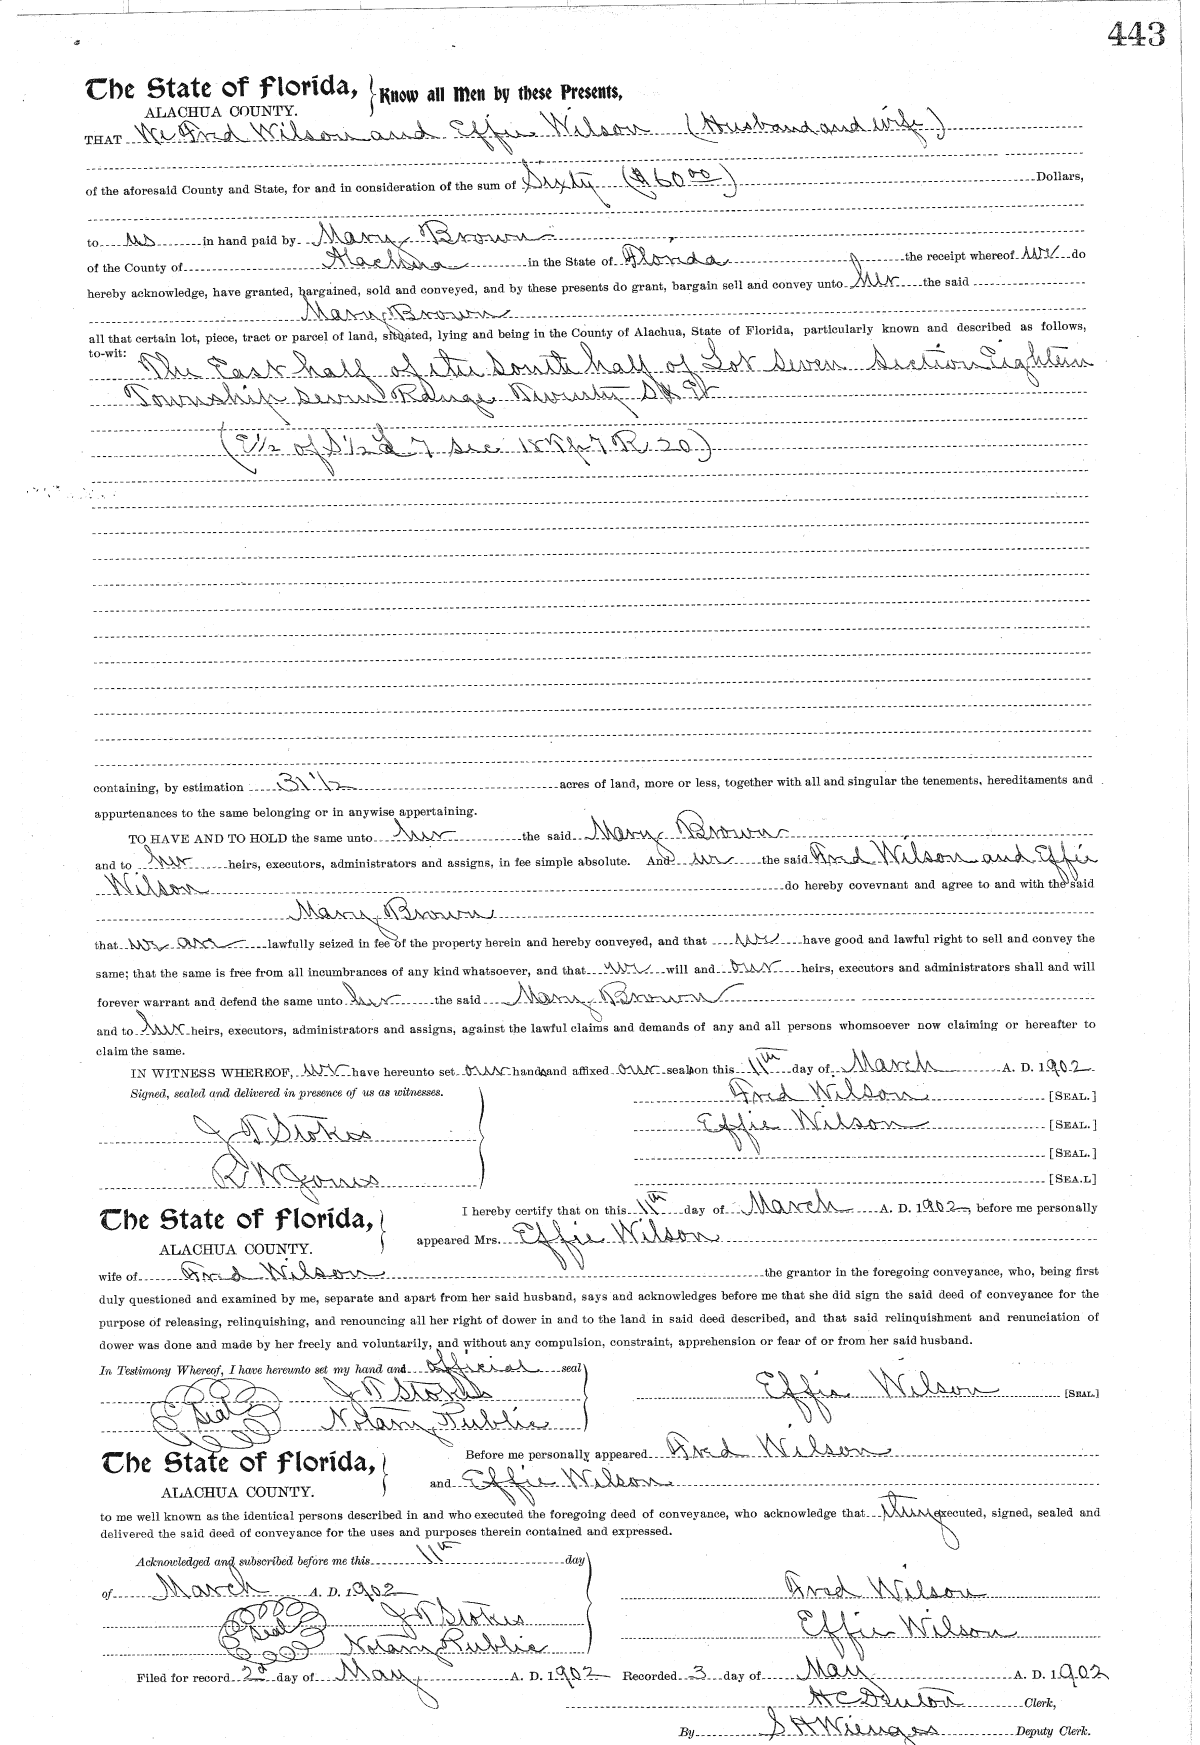 443
The State of Florida, Know all Men by these Presents,
ALACHUA COUNTY.
THAT We Fred Wilson and Effie Wilson (Husband and wife)
of the aforesaid County and State, for and in consideration of the sum of Sixty ($60 00) Dollars,
to us in hand paid by Mary Brown
of the County of Alachua in the State of Florida the receipt whereof we do
hereby acknowledge, have granted, bargained, sold and conveyed, and by these presents do grant, bargain sell and convey unto her the said
Mary Brown
all that certain lot, piece, tract or parcel of land, situated, lying and being in the County of Alachua, State of Florida, particularly known and described as follows,
to-wit: The East half of the South half of Lot Seven Section Eighteen
Township Seven Range Twenty S & E
(E½ of S½ L 7 Sec 18 Tp 7 R. 20)
containing, by estimation 31 1/2 acres of land, more or less, together with all and singular the tenements, hereditaments and
appurtenances to the same belonging or in anywise appertaining.
TO HAVE AND TO HOLD the same unto her the said Mary Brown
and to her heirs, executors, administrators and assigns, in fee simple absolute. And we the said Fred Wilson and Effie
Wilson do hereby covevnant and agree to and with the said
Mary Brown
that we are lawfully seized in fee of the property herein and hereby conveyed, and that we have good and lawful right to sell and convey the
same; that the same is free from all incumbrances of any kind whatsoever, and that we will and our heirs, executors and administrators shall and will
forever warrant and defend the same unto her the said Mary Brown
and to her heirs, executors, administrators and assigns, against the lawful claims and demands of any and all persons whomsoever now claiming or hereafter to
claim the same.
IN WITNESS WHEREOF, we have hereunto set our hands and affixed our seals on this 11th day of March A. D. 1902
Signed, sealed and delivered in presence of us as witnesses. Fred Wilson [SEAL.]
J T Stokes Effie Wilson [SEAL.]
[SEAL.]
R W Jones [SEA.L]
The State of Florida, I hereby certify that on this 11th day of March A. D. 1902, before me personally
ALACHUA COUNTY. appeared Mrs. Effie Wilson
wife of Fred Wilson the grantor in the foregoing conveyance, who, being first
duly questioned and examined by me, separate and apart from her said husband, says and acknowledges before me that she did sign the said deed of conveyance for the
purpose of releasing, relinquishing, and renouncing all her right of dower in and to the land in said deed described, and that said relinquishment and renunciation of
dower was done and made by her freely and voluntarily, and without any compulsion, constraint, apprehension or fear of or from her said husband.
In Testimony Whereof, I have hereunto set my hand and official seal
Seal J T Stokes Effie Wilson [SEAL.]
Notary Public
The State of Florida, Before me personally appeared Fred Wilson
ALACHUA COUNTY. and Effie Wilson
to me well known as the identical persons described in and who executed the foregoing deed of conveyance, who acknowledge that they executed, signed, sealed and
delivered the said deed of conveyance for the uses and purposes therein contained and expressed.
Acknowledged and subscribed before me this 11th day
of March A. D. 1902 Fred Wilson
Seal J T Stokes
Notary Public Effie Wilson
Filed for record 2d day of May A. D. 1902 Recorded 3 day of May A. D. 1902
H C Denton Clerk,
By S H Wienges Deputy Clerk.